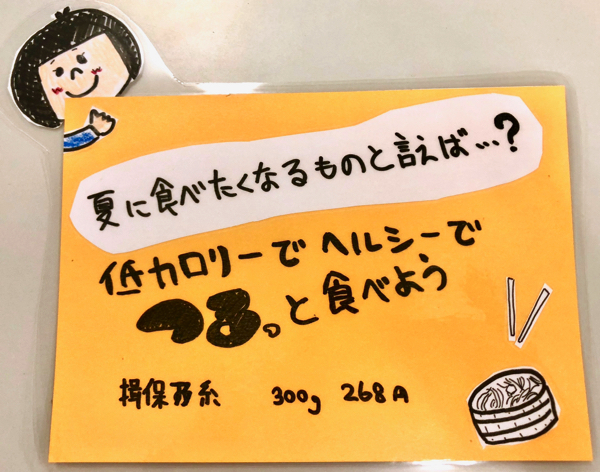 夏に食べたくなるものと言えば…?
低カロリーでヘルシーで
つるっと食べよう
揖保乃糸 300g 268A